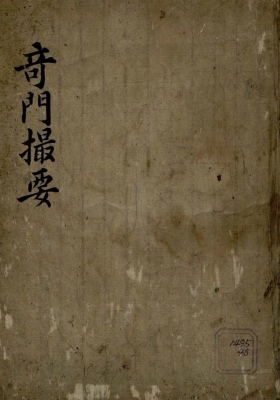 奇門撮要
1495
48